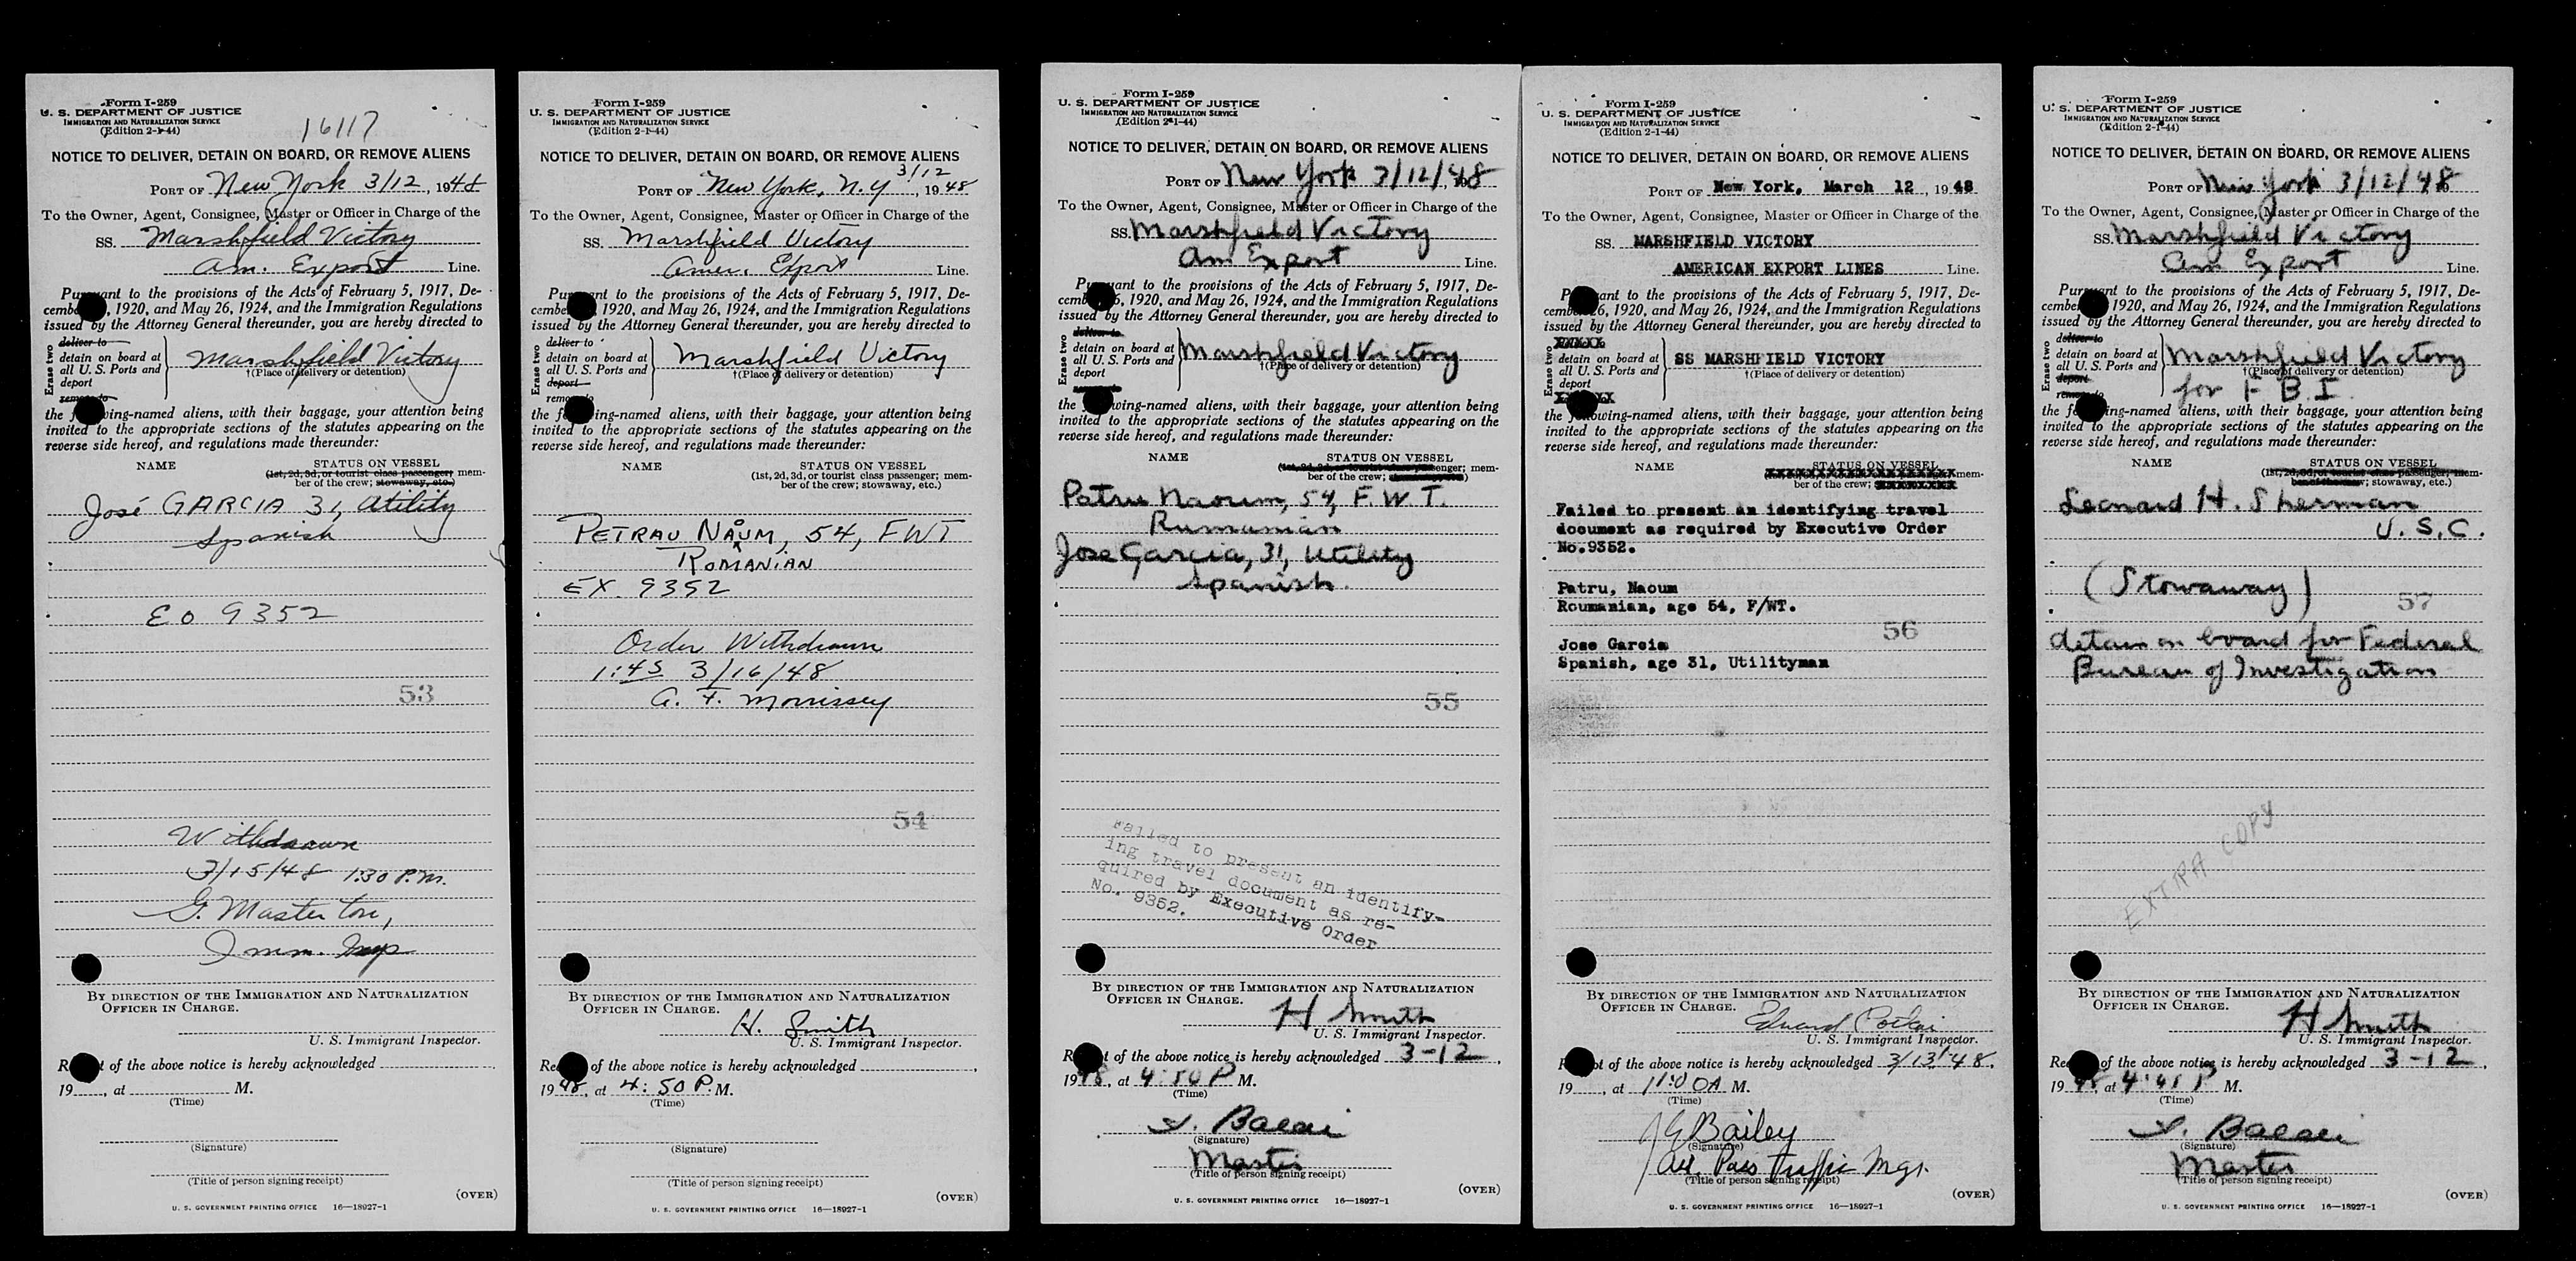 Form I-259
U. S. DEPARTMENT OF JUSTICE
IMMIGRATION AND NATURALIZATION SERVICE
(Edition 2-1-44)
16117
NOTICE TO DELIVER, DETAIN ON BOARD, OR REMOVE ALIENS
PORT OF New York 3/12, 1948
To the Owner, Agent, Consignee, Master or Officer in Charge of the
SS. Marshfield Victory
Am. Export Line.
Pursuant to the provisions of the Acts of February 5, 1917, De-
cember , 1920, and May 26, 1924, and the Immigration Regulations
issued by the Attorney General thereunder, you are hereby directed to
Erase two
deliver to
detain on board at
all U. S. Ports and
deport
remove to
Marshfield Victory
†(Place of delivery or detention)
the following-named aliens, with their baggage, your attention being
invited to the appropriate sections of the statutes appearing on the
reverse side hereof, and regulations made thereunder:
NAME STATUS ON VESSEL
(1st, 2d, 3d, or tourist class passenger; mem-
ber of the crew; stowaway, etc.)
José GARCIA 31, Utility
Spanish
EO 9352
53
Withdrawn
3/15/48 1:30 P.M.
G. Masterton,
Imm. Insp
BY DIRECTION OF THE IMMIGRATION AND NATURALIZATION
OFFICER IN CHARGE.
U. S. Immigrant Inspector.
Receipt of the above notice is hereby acknowledged
19 , at M.
(Time)
(Signature)
(Title of person signing receipt)
(OVER)
U. S. GOVERNMENT PRINTING OFFICE 16—18927-1
Form I-259
U. S. DEPARTMENT OF JUSTICE
IMMIGRATION AND NATURALIZATION SERVICE
(Edition 2-1-44)
NOTICE TO DELIVER, DETAIN ON BOARD, OR REMOVE ALIENS
3/12
PORT OF New York, N.Y, 1948
To the Owner, Agent, Consignee, Master or Officer in Charge of the
SS. Marshfield Victory
Amer. Export Line.
Pursuant to the provisions of the Acts of February 5, 1917, De-
cember 1920, and May 26, 1924, and the Immigration Regulations
issued by the Attorney General thereunder, you are hereby directed to
Erase two
deliver to
detain on board at
all U. S. Ports and
deport
remove to
Marshfield Victory
†(Place of delivery or detention)
the following-named aliens, with their baggage, your attention being
invited to the appropriate sections of the statutes appearing on the
reverse side hereof, and regulations made thereunder:
NAME STATUS ON VESSEL
(1st, 2d, 3d, or tourist class passenger; mem-
ber of the crew; stowaway, etc.)
PETRAU NAOUM, 54, FWT
ROMANIAN
EX. 9352
Order Withdrawn
1:45 3/16/48
A. F. Morrissey
54
BY DIRECTION OF THE IMMIGRATION AND NATURALIZATION
OFFICER IN CHARGE.
H. Smith
U. S. Immigrant Inspector.
Receipt of the above notice is hereby acknowledged
1948, at 4:50 P. M.
(Time)
(Signature)
(Title of person signing receipt)
(OVER)
U. S. GOVERNMENT PRINTING OFFICE 16—18927-1
Form I-259
U. S. DEPARTMENT OF JUSTICE
IMMIGRATION AND NATURALIZATION SERVICE
(Edition 2-1-44)
NOTICE TO DELIVER, DETAIN ON BOARD, OR REMOVE ALIENS
PORT OF New York 3/12/48
To the Owner, Agent, Consignee, Master or Officer in Charge of the
SS. Marshfield Victory
Am Export Line.
Pursuant to the provisions of the Acts of February 5, 1917, De-
cember 6, 1920, and May 26, 1924, and the Immigration Regulations
issued by the Attorney General thereunder, you are hereby directed to
Erase two
deliver to
detain on board at
all U. S. Ports and
deport
Marshfield Victory
†(Place of delivery or detention)
the following-named aliens, with their baggage, your attention being
invited to the appropriate sections of the statutes appearing on the
reverse side hereof, and regulations made thereunder:
NAME STATUS ON VESSEL
(1st, 2d, 3d, or tourist class passenger; mem-
ber of the crew;
Patru Naoum, 54, F.W.T.
Rumanian
Jose Garcia, 31, Utility
Spanish.
55
Failed to present an identify-
ing travel document as re-
quired by Executive Order
No. 9352.
BY DIRECTION OF THE IMMIGRATION AND NATURALIZATION
OFFICER IN CHARGE.
H Smith
U. S. Immigrant Inspector.
Receipt of the above notice is hereby acknowledged 3-12,
1948, at 4:50 P M.
(Time)
(Signature)
Master
(Title of person signing receipt)
(OVER)
U. S. GOVERNMENT PRINTING OFFICE 16—18927-1
Form I-259
U. S. DEPARTMENT OF JUSTICE
IMMIGRATION AND NATURALIZATION SERVICE
(Edition 2-1-44)
NOTICE TO DELIVER, DETAIN ON BOARD, OR REMOVE ALIENS
PORT OF New York, March 12, 1948
To the Owner, Agent, Consignee, Master or Officer in Charge of the
SS. MARSHFIELD VICTORY
AMERICAN EXPORT LINES Line.
Pursuant to the provisions of the Acts of February 5, 1917, De-
cember 26, 1920, and May 26, 1924, and the Immigration Regulations
issued by the Attorney General thereunder, you are hereby directed to
Erase two
XXXXX
detain on board at
all U. S. Ports and
deport
XXXXXX
SS MARSHFIELD VICTORY
†(Place of delivery or detention)
the following-named aliens, with their baggage, your attention being
invited to the appropriate sections of the statutes appearing on the
reverse side hereof, and regulations made thereunder:
NAME STATUS ON VESSEL
mem-
ber of the crew;
Failed to present an identifying travel
document as required by Executive Order
No.9352.
Patru, Naoum
Roumanian, age 54, F/WT.
56
Jose Garcia
Spanish, age 31, Utilityman
BY DIRECTION OF THE IMMIGRATION AND NATURALIZATION
OFFICER IN CHARGE.
Edward
U. S. Immigrant Inspector.
Receipt of the above notice is hereby acknowledged 3/13/48.
19 , at 11:00A M.
(Time)
J E Bailey
(Signature)
Pass Traffic Mgr.
(Title of person signing receipt)
(OVER)
U. S. GOVERNMENT PRINTING OFFICE 16—18927-1
Form I-259
U. S. DEPARTMENT OF JUSTICE
IMMIGRATION AND NATURALIZATION SERVICE
(Edition 2-1-44)
NOTICE TO DELIVER, DETAIN ON BOARD, OR REMOVE ALIENS
PORT OF New York 3/12/48
To the Owner, Agent, Consignee, Master or Officer in Charge of the
SS. Marshfield Victory
Am Export Line.
Pursuant to the provisions of the Acts of February 5, 1917, De-
cember 1920, and May 26, 1924, and the Immigration Regulations
issued by the Attorney General thereunder, you are hereby directed to
Erase two
deliver to
detain on board at
all U. S. Ports and
deport
remove to
Marshfield Victory
†(Place of delivery or detention)
for F B I.
the following-named aliens, with their baggage, your attention being
invited to the appropriate sections of the statutes appearing on the
reverse side hereof, and regulations made thereunder:
NAME STATUS ON VESSEL
(1st, 2d, 3d, or tourist class passenger; mem-
ber of the crew; stowaway, etc.)
Leonard H. Sherman
U.S.C.
(Stowaway)
57
detain on board for Federal
Bureau of Investigation
EXTRA COPY
BY DIRECTION OF THE IMMIGRATION AND NATURALIZATION
OFFICER IN CHARGE.
H Smith
U. S. Immigrant Inspector.
Receipt of the above notice is hereby acknowledged 3-12,
1948, at 4:45 P M.
(Time)
(Signature)
Master
(Title of person signing receipt)
(OVER)
U. S. GOVERNMENT PRINTING OFFICE 16—18927-1